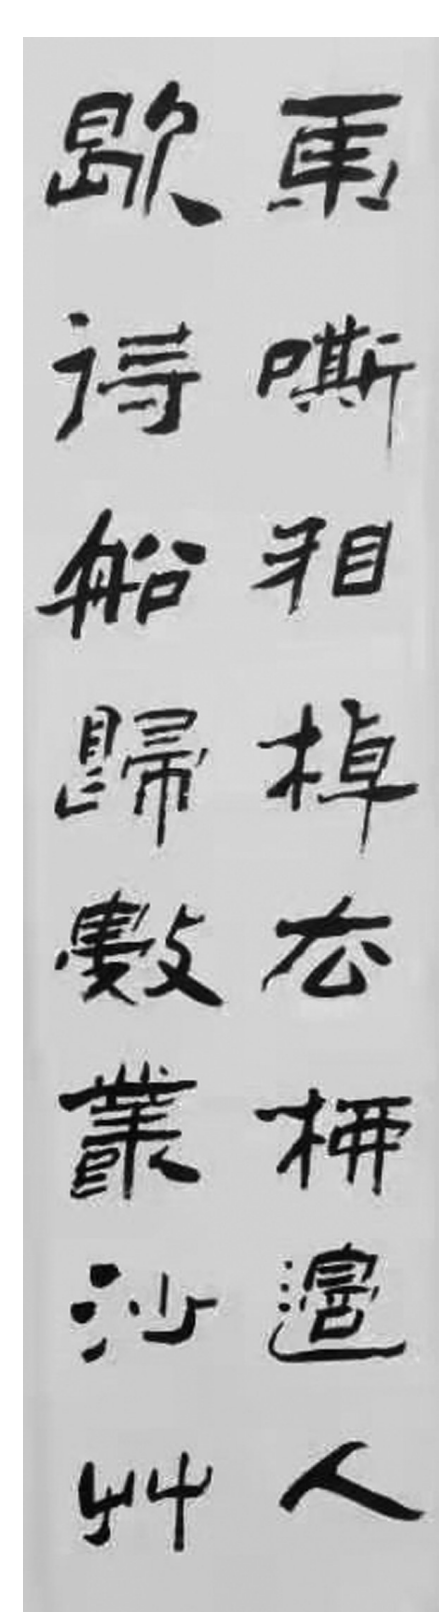 馬嘶看棹去柳邊人
歇待船歸數叢沙艸